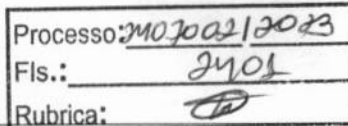 Processo: 2407002/2023
Fls.: 2401
Rubrica: